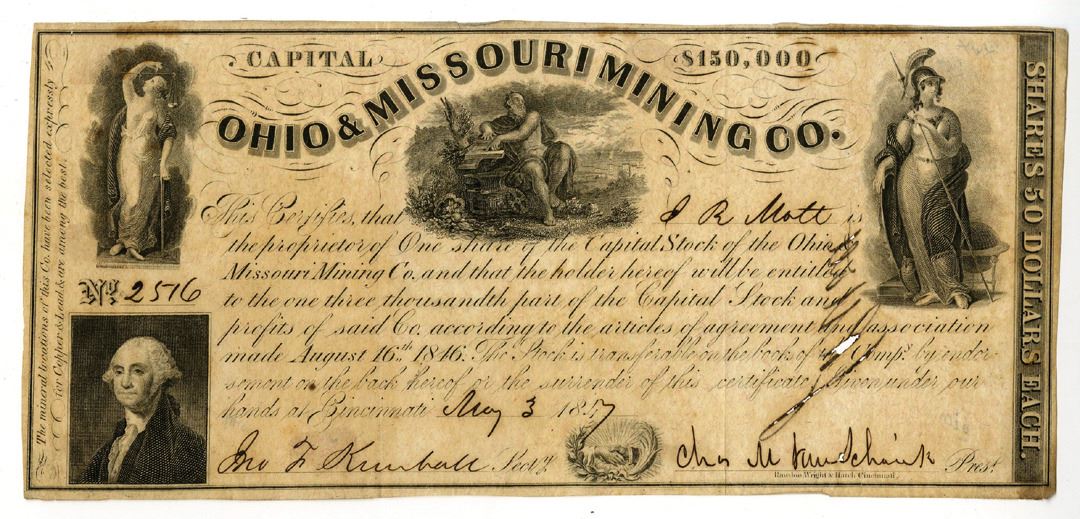 CAPITAL $150,000
OHIO & MISSOURI MINING CO.
This Certifies, that J R Mott is
the proprietor of One share of the Capital Stock of the Ohio &
Missouri Mining Co. and that the holder hereof will be entitled
to the one three thousandth part of the Capital Stock and
profits of said Co. according to the articles of agreement and association
made August 16th. 1846. The Stock is transferable on the books of the Compy. by endor
sement on the back hereof or the surrender of this certificate. Given under our
hands at Cincinnati May 3 1847
Jno F Kimball Secty.
Chas M Pres.t
Rawdon, Wright & Hatch, Cincinnati.
No. 2516
The mineral locations of this Co. have been selected expressly
for Copper & Lead, & are among the best.
SHARES 50 DOLLARS EACH.